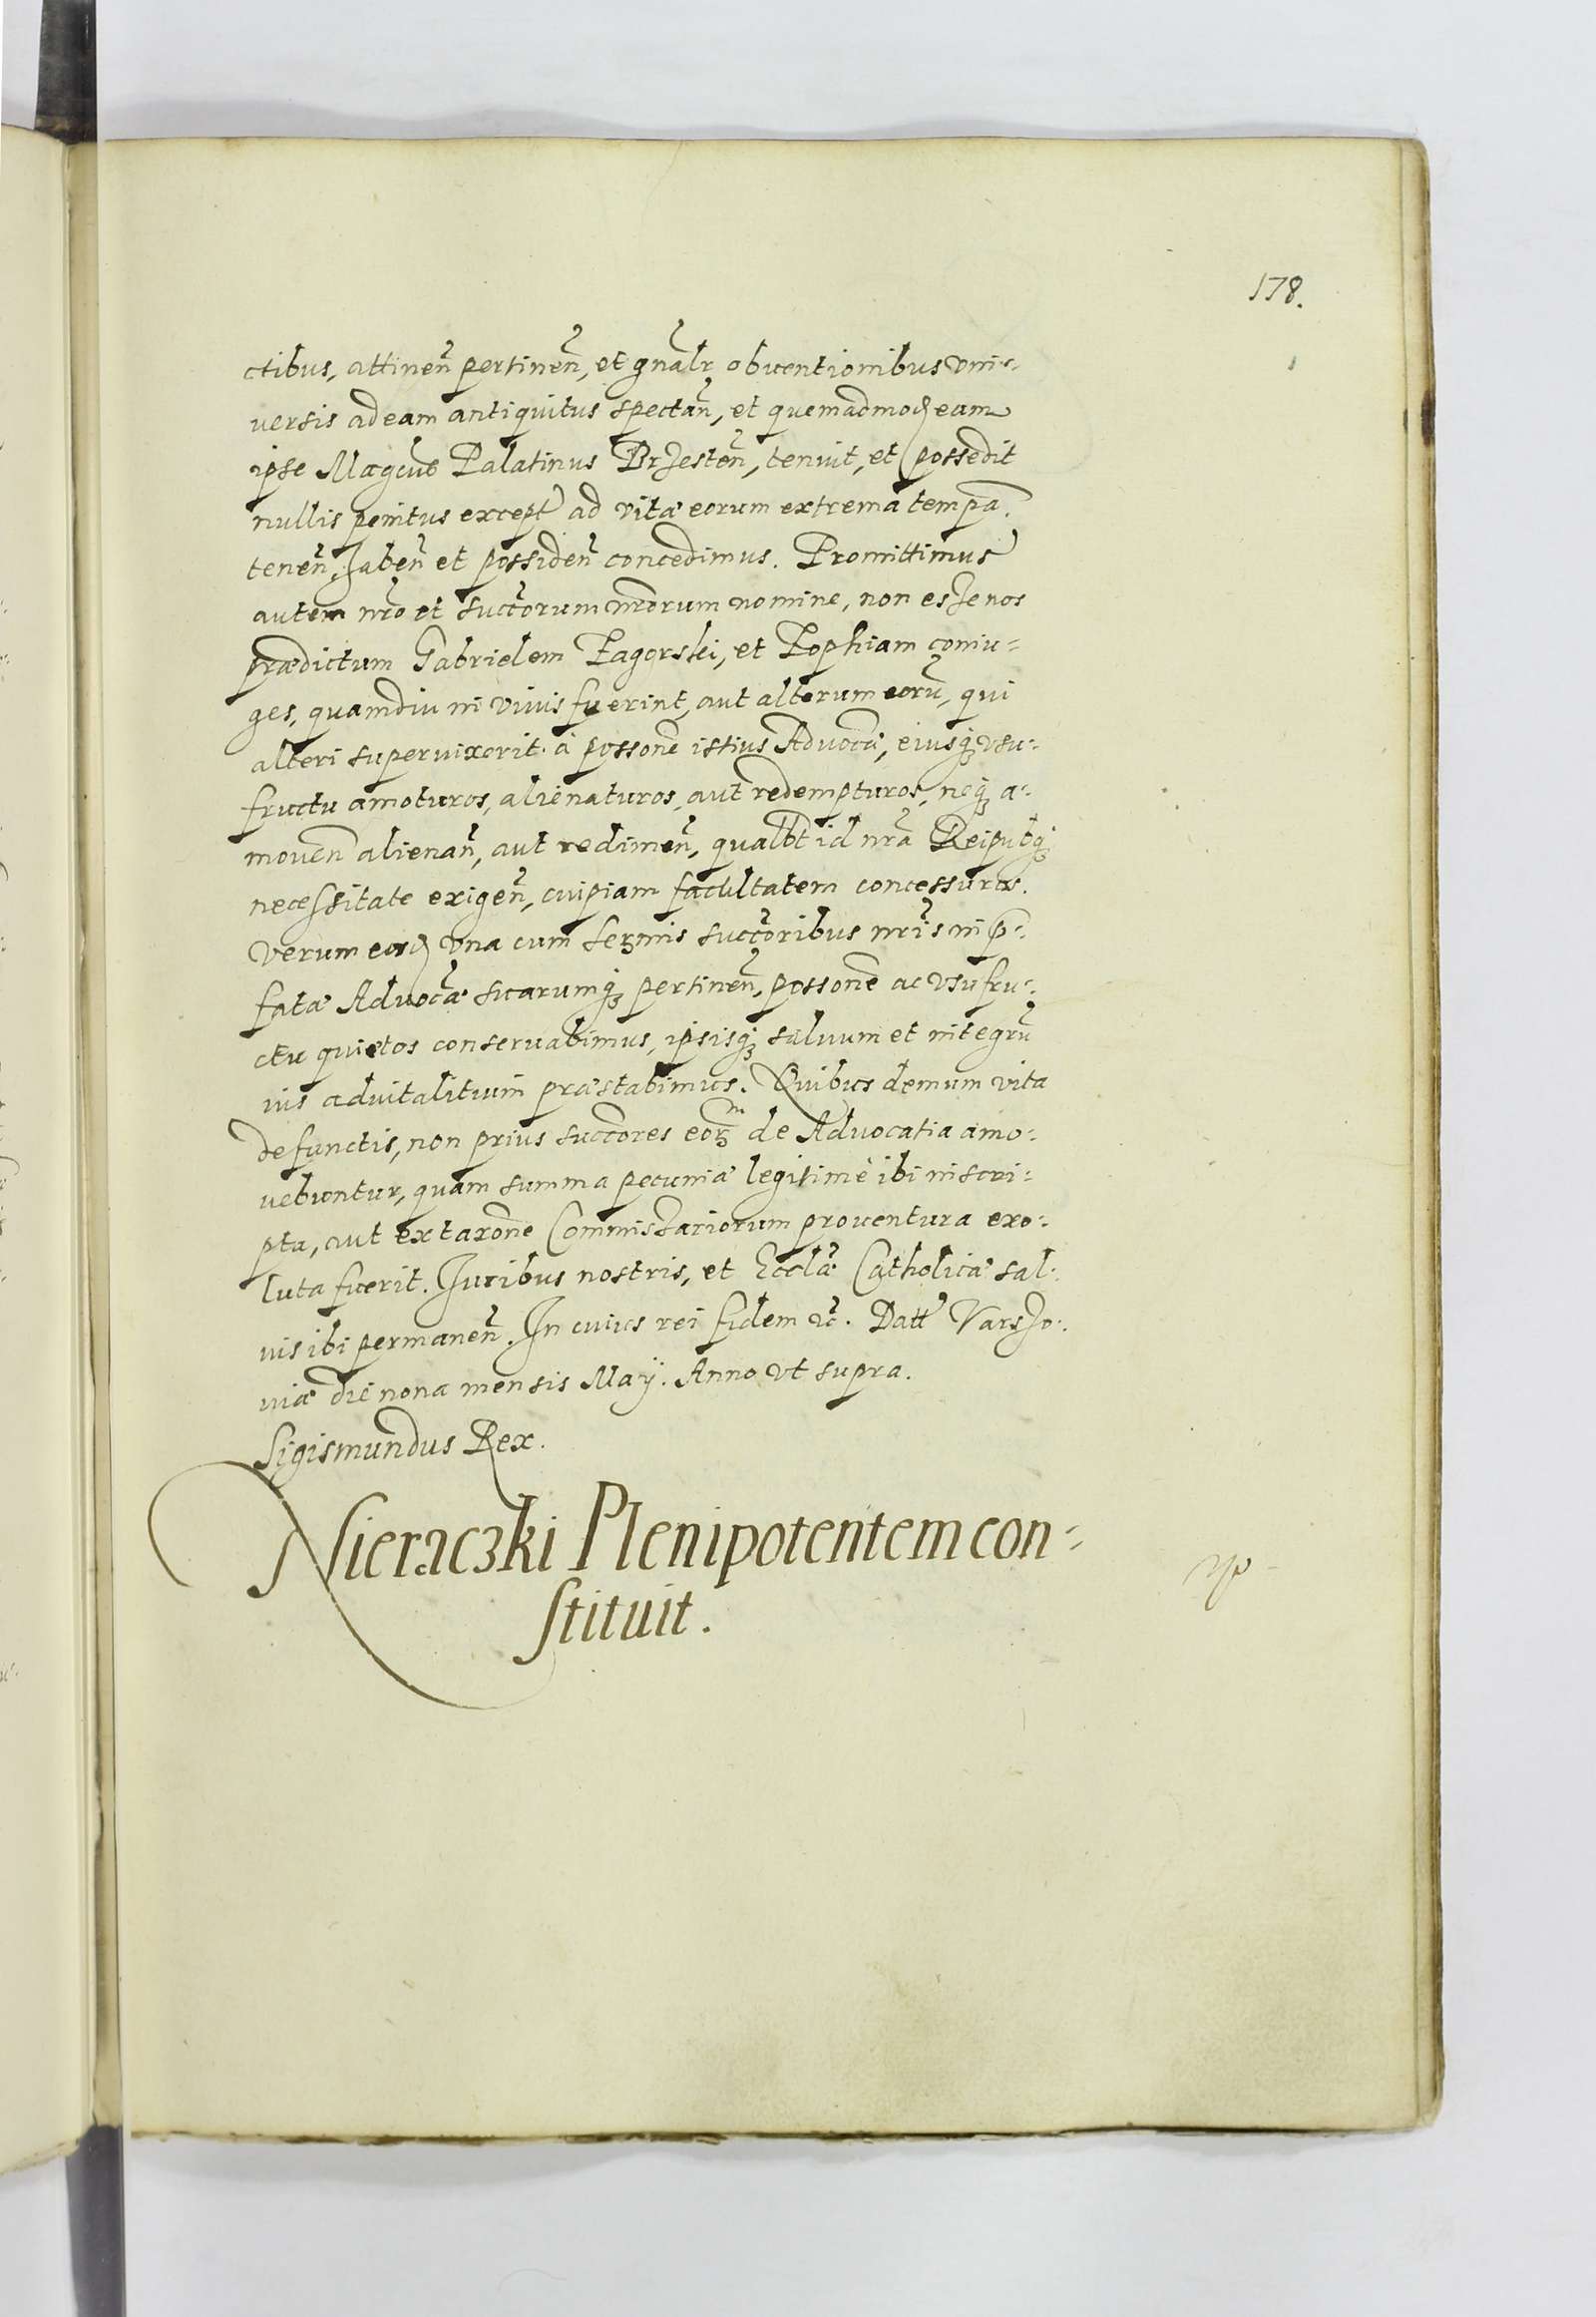 178.
ctibus, attinen̄ pertinen̄, et gn̄alr obventionibus vni-
versis ad eam antiquitus spectan̄, et quemadmod eam
ipse Magcus Palatinus Brzesten̄, tenuit, et possedit
nullis penitus except ad vitæ eorum extrema tempa.
tenen̄, haben̄ et possiden̄ concedimus. Promittimus
autem nr̄o et succorum nr̄orum nomine, non esse nos
prædictum Gabrielem Zagorski, et Zophiam coniu-
ges, quamdiu in viuis fuerint, aut alterum eorū, qui
alteri supervixerit à possone istius Advocæ, eiusq vsu-
fructu amoturos, alienaturos, aut redempturos, neq a-
moven̄ alienan̄, aut redimen̄, qualbt id nr̄a Reipubq
necessitate exigen̄, cuipiam facultatem concessuros.
Verum eosd vna cum sermis succoribus nr̄is in p-
fatæ Advocæ suarumq pertinen̄, possone ac vsufru-
ctu quietos conservabimus, ipsisq salvum et integrū
ius advitalitium præstabimus. Quibus demum vita
defunctis, non prius succores eorm de Advocatia amo-
vebuntur, quam summa pecuniæ legitimè ibi inscri-
pta, aut ex taxone Commissariorum proventura exo-
luta fuerit. Iuribus nostris, et Ecclæ Catholicæ sal-
vis ibi permanen̄. In cuius rei fidem etc. Datt Varsso-
viæ die nona mensis Maÿ. Anno vt supra.
Sigismundus Rex.
Sieraczki Plenipotentem con-
stituit.